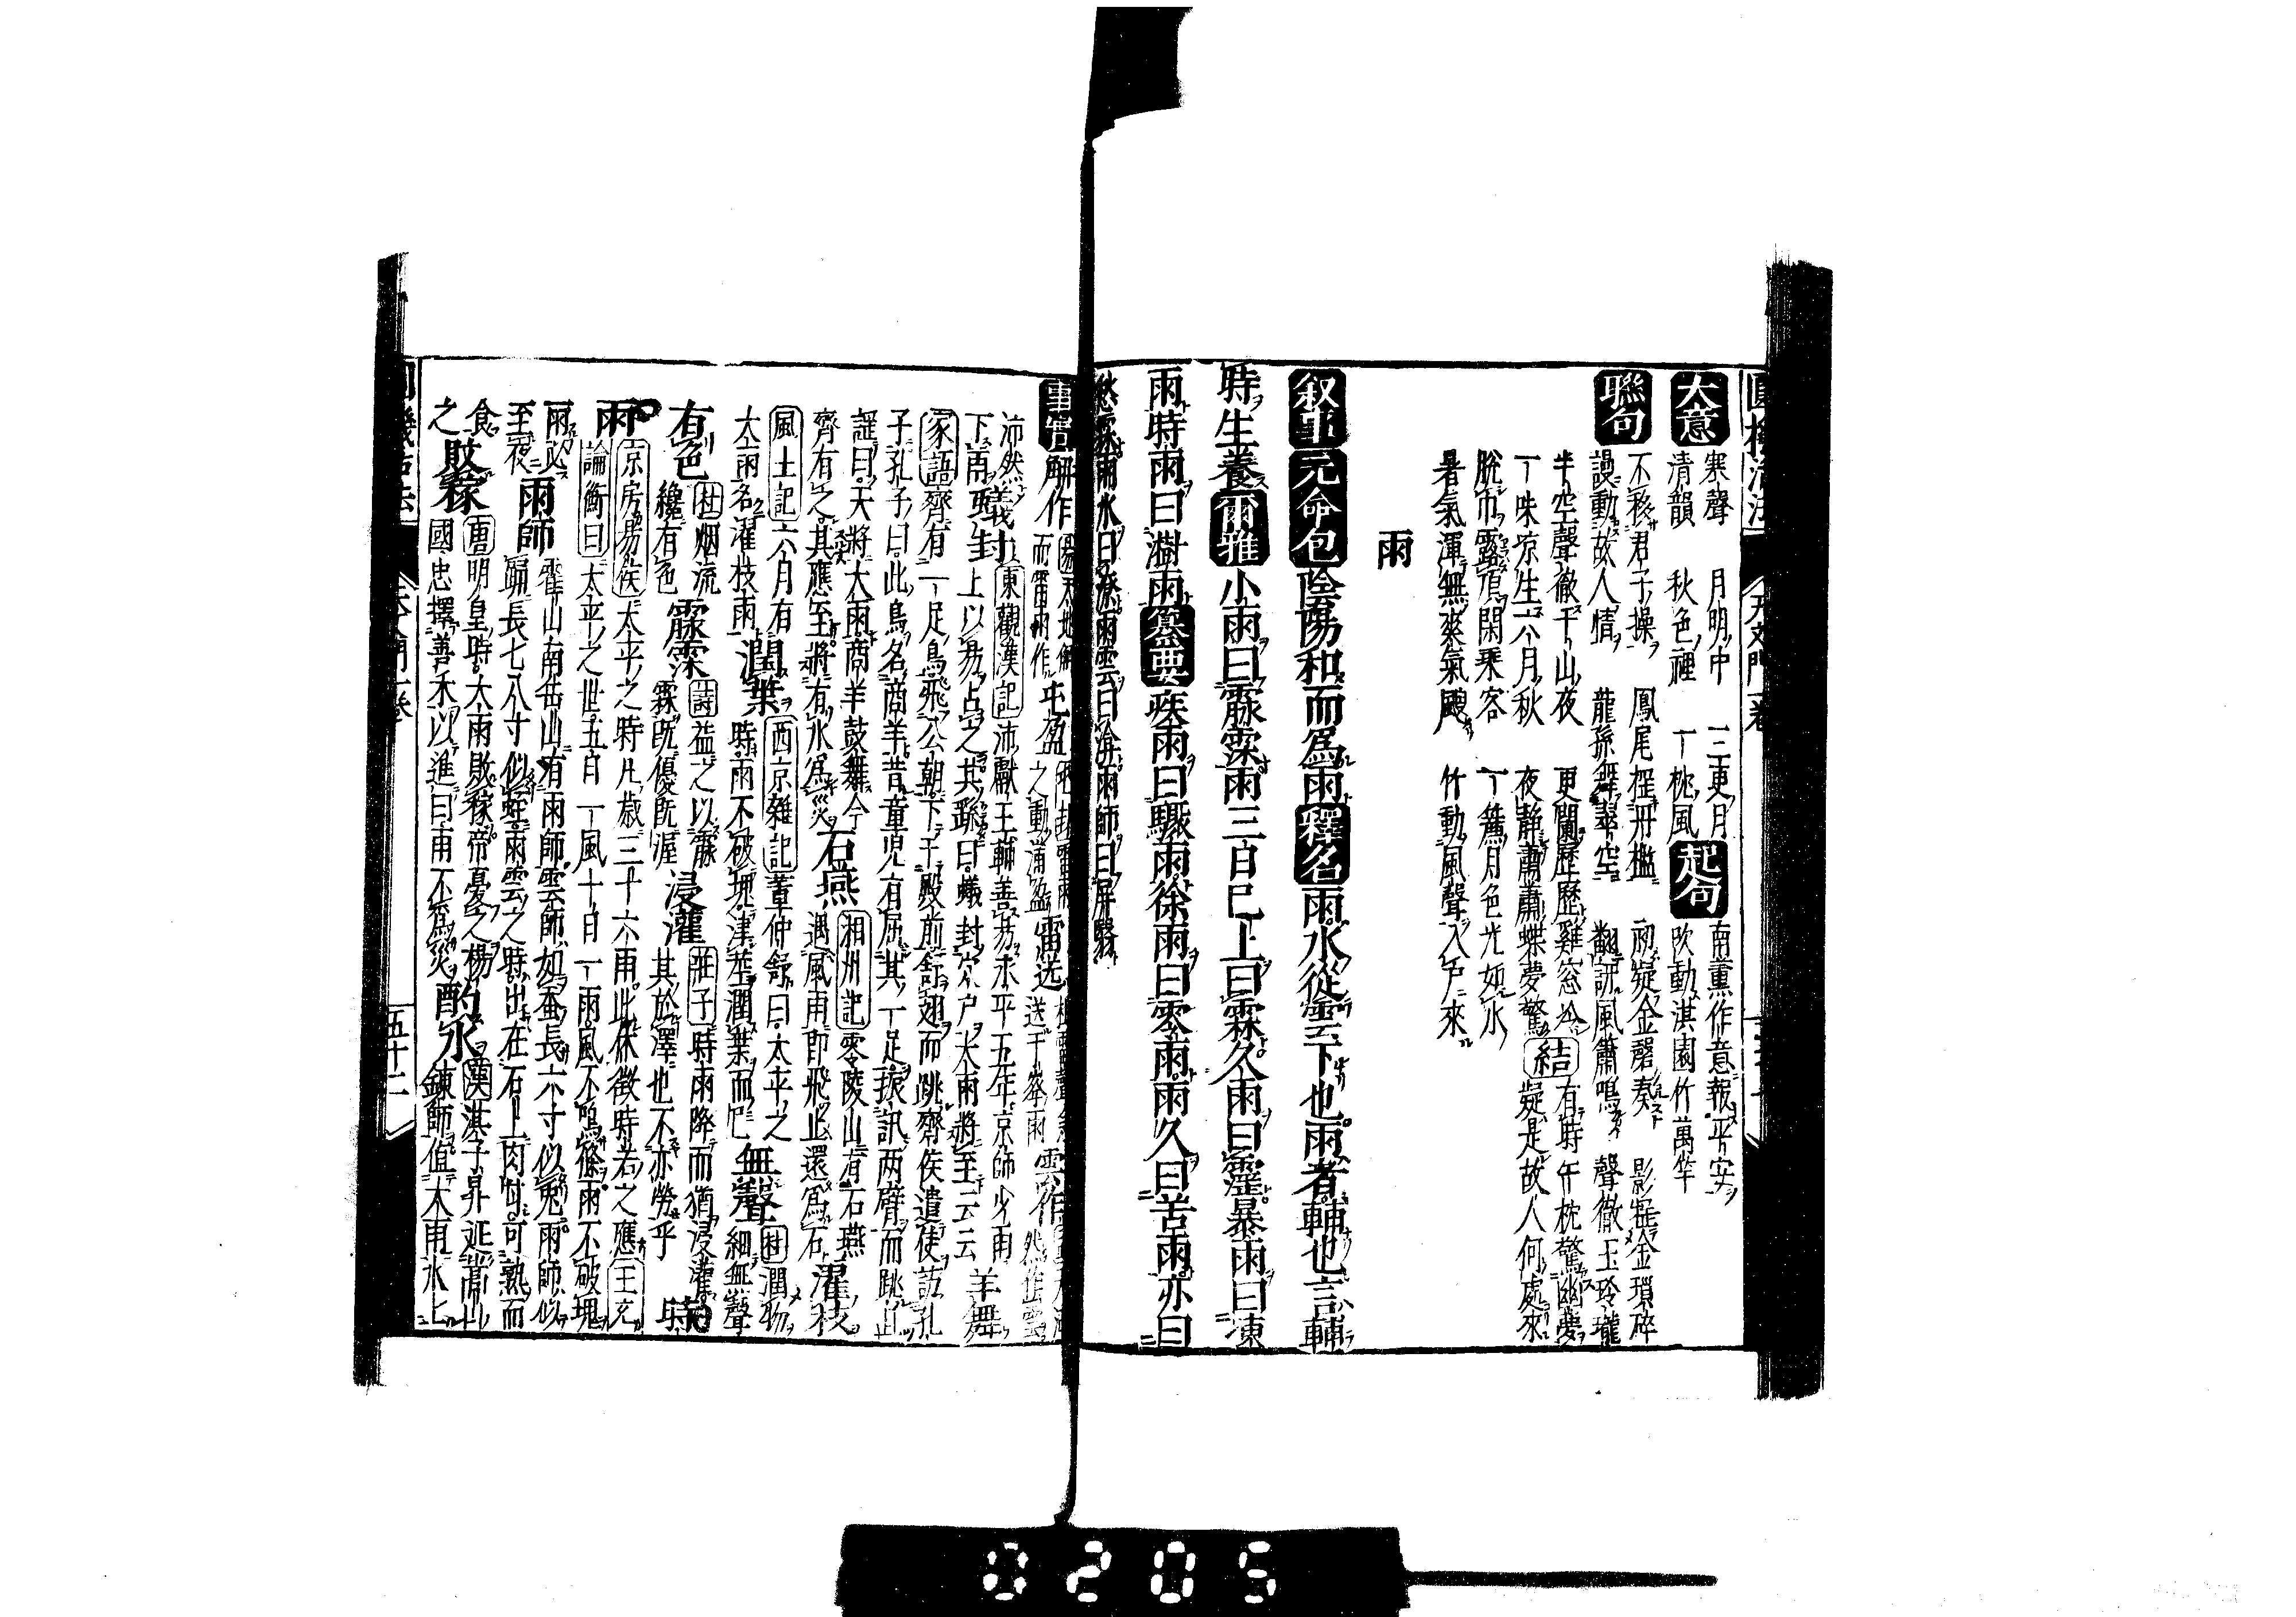 大意 寒聲 月明中 三更月
清韻 秋色裡 一枕風 起句 南薰作意報平安
吹動淇園竹萬竿
聯句 不移君子操 鳳尾 初疑金磬奏 影 金瑣碎
謾動故人情 龍孫舞翠空 翻訝風簫鳴 聲徹玉玲瓏
半空聲徹千山夜 更闌歷歷雞窓冷 結 有時午枕驚幽夢
一味凉生六月秋 夜静蕭蕭蝶夢驚 疑是故人何處來
脫巾露頂閑乘客 一簾月色光如水
暑氣渾無爽氣颼 竹動風聲入戶來
雨
叙事 元命包 陰陽和而爲雨 釋名 雨水從雲下也雨者輔也言輔
時生養 爾雅 小雨曰霢霂雨三日已上曰霖久雨曰霪暴雨曰涷
雨時雨曰澍雨 纂要 疾雨曰驟雨徐雨曰零雨雨久曰苦雨亦曰
愁霖雨水曰潦雨雲曰渰雨師曰屏翳
事實 解作 易天地解 屯盈 雷送 雲作
而雷雨作 之動滿盈 送千峯雨 然作雲
沛然下雨 蟻封 東觀漢記 沛獻王輔善易永平五年京師少雨
上以易占之其繇曰蟻封穴戶大雨將至云云 羊舞
家語 齊有一足鳥飛公朝下于殿前舒翅而跳齊侯遣使訪孔
子孔子曰此鳥名商羊昔童兒有屈其一足振訊兩臂而跳且
謡曰天將大雨商羊鼓舞今 石燕 湘州記 零陵山有石燕
齊有之其應至將有水爲災 遇風雨即飛止還爲石 濯枝
風土記 六月有
大雨名濯枝雨 潤葉 西京雜記 董仲舒曰太平之
時雨不破塊津莖潤葉而已 無聲 杜 潤物
細無聲
有色 杜 烟流
纔有色 霢霂 詩 益之以霢
霂既優既渥 浸灌 莊子 時雨降而猶浸灌
其於澤也不亦勞乎 時
雨 京房易侯 太平之時凡歲三十六雨此休徵時若之應 王充
論衡曰 太平之世五日一風十日一雨風不鳴條雨不破塊
雨必
至夜 雨師 霍山南岳山有雨師雲師如蚕長六寸似兎雨師似
蹦長七八寸似蛭雨雲之時出在石上肉甘可熟而
食之 敗稼 唐 明皇時大雨敗稼帝憂之楊
國忠擇善禾以進曰雨不爲災 酌水 漢 淇子昇 嵩山
錬師值大雨水上
五十二
0205